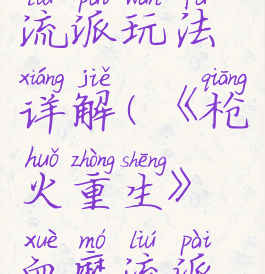 liú pài wán fǎ
流派玩法
xiáng jiě qiāng
详解(《枪
huǒ zhòng shēng
火重生》
xuè mó liú pài
血魔流派